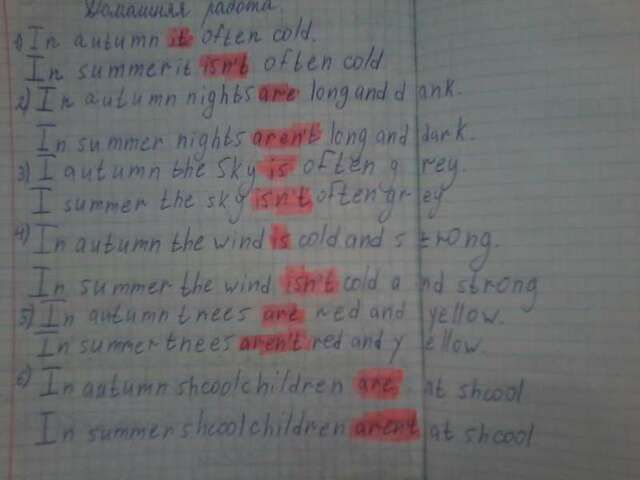 Домашняя работа.
1) In autumn it often cold.
In summer it isn't often cold
2) In autumn nights are long and d ank.
In summer nights aren't long and dark.
3) I autumn the sky is often g rey.
I summer the sky isn't often gr ey
4) In autumn the wind is cold and s trong.
In summer the wind isn't cold a nd strong
5) In autumn tnees are red and yellow.
In summer tnees aren't red and y ellow.
6) In autumn shcoolchildren are at shcool
In summer shcoolchildren arent at shcool